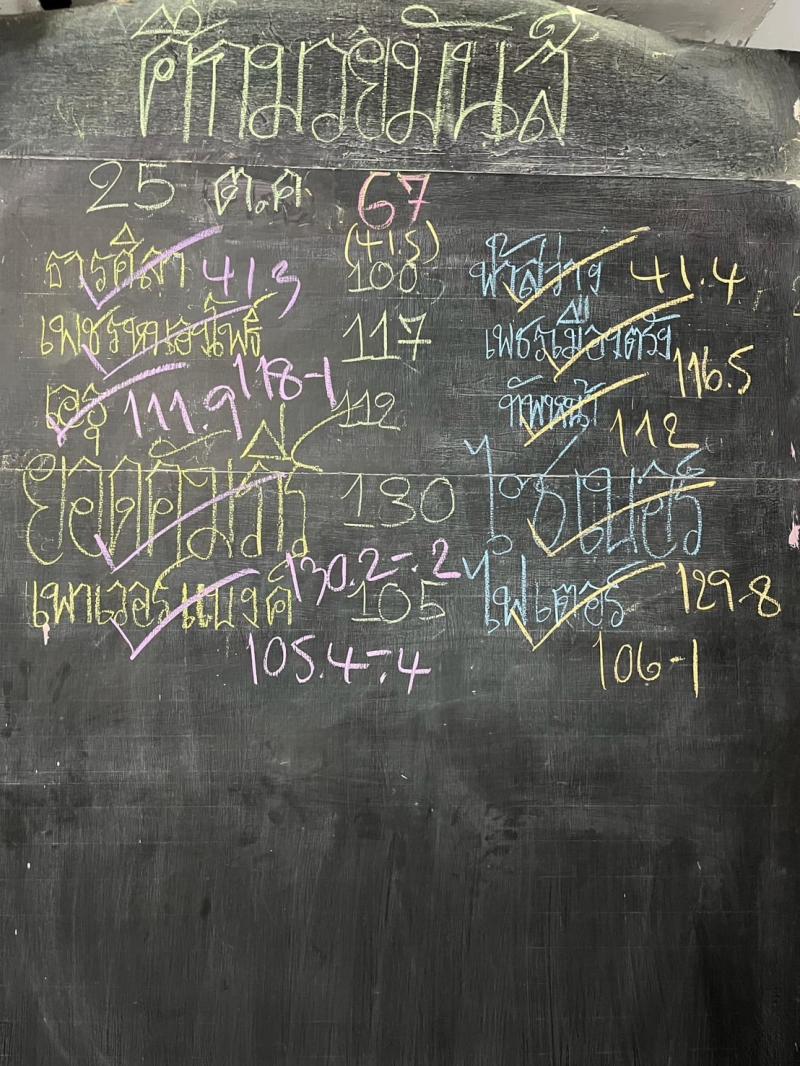 ศึกมวยมันส์
25 ต.ค. 67
(41.5)
ธารศิลา 41.3 100 ฟ้าสว่าง 41.4
เพชรหนองโพธิ์ 118-1 117 เพชรเมืองตรัง 116.5
เอซุ 111.9 112 ทัพหน้า 112
ยอดคัมภีร์ 130.2-.2 130 ไซเบอร์ 129.8
เพาเวอร์แบงค์ 105.4-.4 105 ไฟเตอร์ 106-1